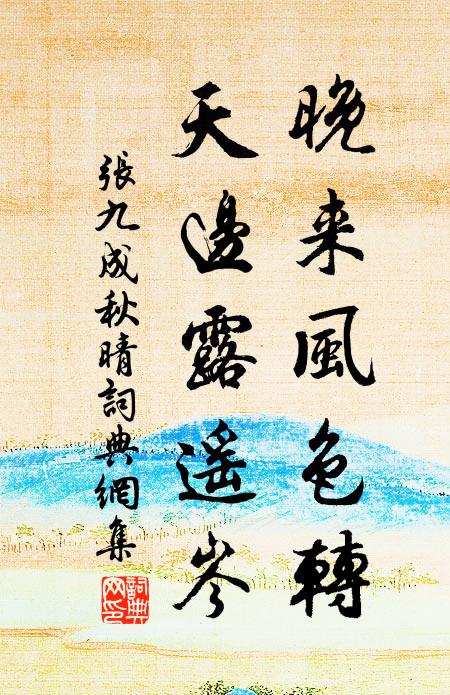 晚来風色轉
天邊露遥岑
張九成秋晴詞典網集